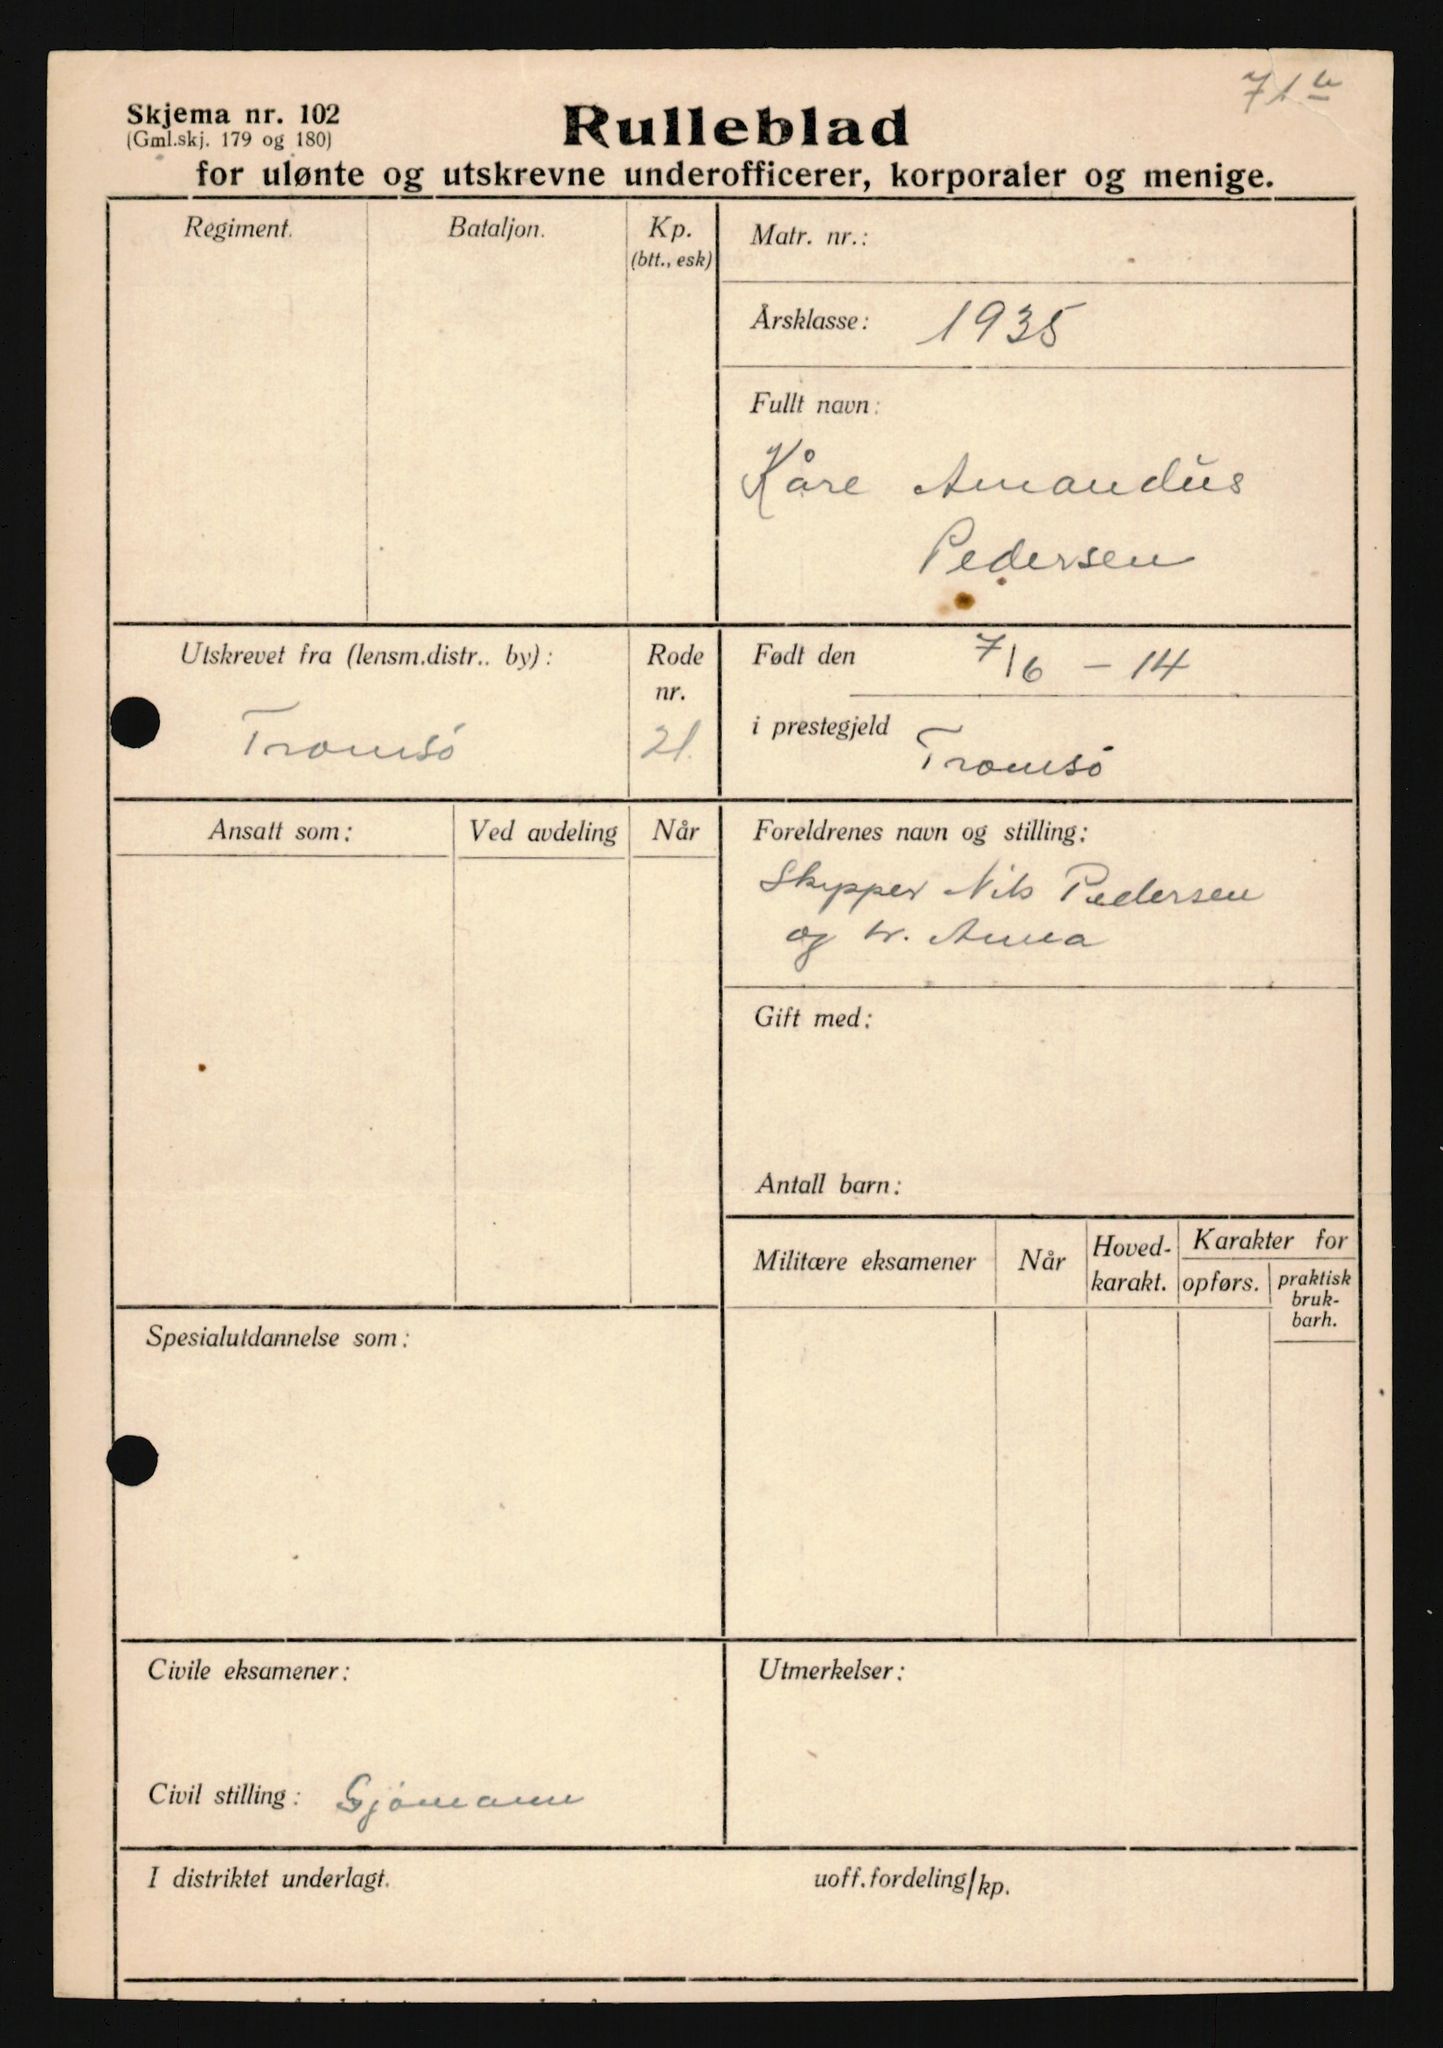 Skjema nr. 102
(Gml.skj. 179 og 180)
Rulleblad
for ulønte og utskrevne underofficerer, korporaler og menige.
Regiment.
Bataljon.
Kp.
(btt., esk)
Matr. nr.:
Årsklasse: 1935
Fullt navn:
Kåre Amandus
Pedersen
Utskrevet fra (lensm.distr.. by):
Tromsö
Rode
nr.
21.
Født den 7/6 - 14
i prestegjeld Tromsö
Ansatt som:
Ved avdeling
Når
Foreldrenes navn og stilling:
Skypper Nils Pedersen
og Anna
Gift med:
Antall barn:
Militære eksamener
Når
Hoved-
karakt.
Karakter for
opførs.
praktisk
bruk-
barh.
Spesialutdannelse som:
Civile eksamener:
Civil stilling: Sjömann
Utmerkelser:
I distriktet underlagt.
uoff.fordeling/kp.